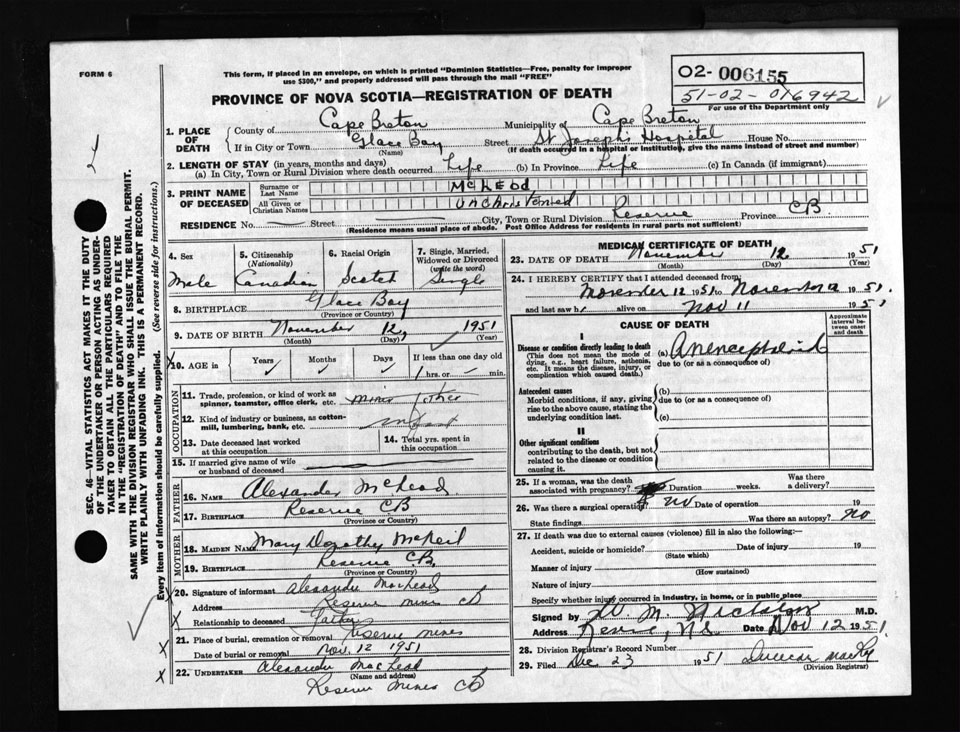 FORM 6
This form, if placed in an envelope, on which is printed "Dominion Statistics—Free, penalty for improper
use $300," and properly addressed will pass through the mail "FREE"
02- 006155
51-02-016942
For use of the Department only
PROVINCE OF NOVA SCOTIA—REGISTRATION OF DEATH
1. PLACE OF DEATH
County of Cape Breton Municipality of Cape Breton
If in City or Town Glace Bay Street St. Joseph's Hospital House No.
(Name) (If death occurred in a hospital or institution, give the name instead of street and number)
2. LENGTH OF STAY (in years, months and days)
(a) In City, Town or Rural Division where death occurred Life (b) In Province Life (c) In Canada (if immigrant)
3. PRINT NAME OF DECEASED
Surname or Last Name McLEOD
All Given or Christian Names UNChristened
RESIDENCE No. Street City, Town or Rural Division Reserve Province CB
(Residence means usual place of abode. Post Office Address for residents in rural parts not sufficient)
4. Sex Male
5. Citizenship (Nationality) Canadian
6. Racial Origin Scotch
7. Single, Married, Widowed or Divorced (write the word) Single
8. BIRTHPLACE Glace Bay
(Province or Country)
9. DATE OF BIRTH November 12 1951
(Month) (Day) (Year)
10. AGE in Years Months Days If less than one day old
hrs. or min.
OCCUPATION
11. Trade, profession, or kind of work as spinner, teamster, office clerk, etc.
12. Kind of industry or business, as cotton-mill, lumbering, bank, etc. infant
13. Date deceased last worked at this occupation
14. Total yrs. spent in this occupation
15. If married give name of wife or husband of deceased
FATHER
16. NAME Alexander McLeod
17. BIRTHPLACE Reserve CB
(Province or Country)
MOTHER
18. MAIDEN NAME Mary Dorothy McNeil
19. BIRTHPLACE Reserve CB.
(Province or Country)
20. Signature of informant Alexander MacLeod
Address Reserve mines CB
Relationship to deceased Father
21. Place of burial, cremation or removal Reserve mines
Date of burial or removal Nov. 12 1951
22. UNDERTAKER Alexander MacLeod
(Name and address)
Reserve mines CB
MEDICAL CERTIFICATE OF DEATH
23. DATE OF DEATH November 12 1951
(Month) (Day) (Year)
24. I HEREBY CERTIFY that I attended deceased from:
November 12 1951 to November 1951.
and last saw h alive on Nov 11 1951
CAUSE OF DEATH
Approximate interval between onset and death
I
Disease or condition directly leading to death
(This does not mean the mode of dying, e.g., heart failure, asthenia, etc. It means the disease, injury, or complication which caused death.)
(a) Anencephloid
due to (or as a consequence of)
Antecedent causes
Morbid conditions, if any, giving rise to the above cause, stating the underlying condition last.
(b)
due to (or as a consequence of)
(c)
II
Other significant conditions
contributing to the death, but not related to the disease or condition causing it.
25. If a woman, was the death associated with pregnancy? Duration weeks. Was there a delivery?
26. Was there a surgical operation? no Date of operation 19
State findings Was there an autopsy? no
27. If death was due to external causes (violence) fill in also the following:—
Accident, suicide or homicide? Date of injury 19
(State which)
Manner of injury
(How sustained)
Nature of injury
Specify whether injury occurred in industry, in home, or in public place
Signed by M. M.D.
Address N.S. Date Nov 12 1951.
28. Division Registrar's Record Number
29. Filed Dec 23 1951 Duncan MacKay
(Division Registrar)
SEC. 46—VITAL STATISTICS ACT MAKES IT THE DUTY
OF THE UNDERTAKER OR PERSON ACTING AS UNDER-
TAKER TO OBTAIN ALL THE PARTICULARS REQUIRED
IN THE "REGISTRATION OF DEATH" AND TO FILE THE
SAME WITH THE DIVISION REGISTRAR WHO SHALL ISSUE THE BURIAL PERMIT.
WRITE PLAINLY WITH UNFADING INK. THIS IS A PERMANENT RECORD.
Every item of information should be carefully supplied. (See reverse side for instructions.)